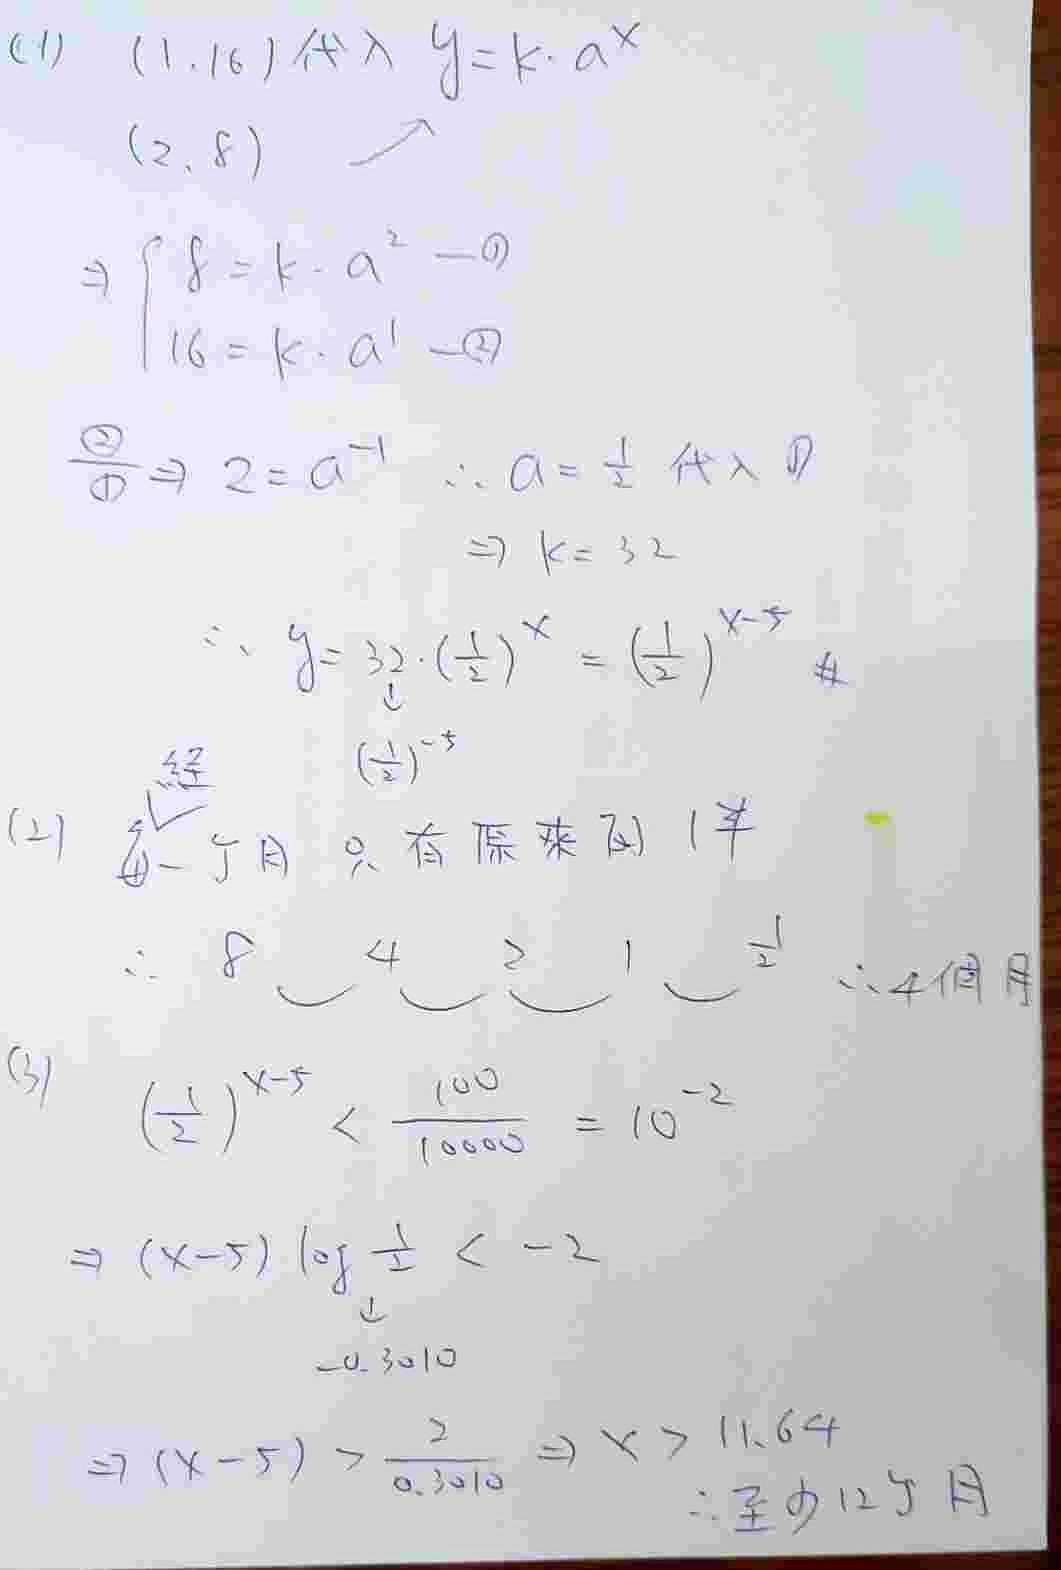 (1) (1.16)代入 y=k·a^x
(2.8) ↗
⇒ { 8=k·a^2 —①
16=k·a^1 —②
②/① ⇒ 2=a^-1 ∴a=1/2 代入①
⇒ k=32
∴ y=32·(1/2)^x = (1/2)^(x-5) #
↓
(1/2)^-5
経
(2) 每一个月 只有原來的 1半
∴ 8 4 2 1 1/2 ∴4個月
(3) (1/2)^(x-5) < 100/10000 = 10^-2
⇒ (x-5) log 1/2 < -2
↓
-0.3010
⇒ (x-5) > 2/0.3010 ⇒ x > 11.64
∴至少12个月